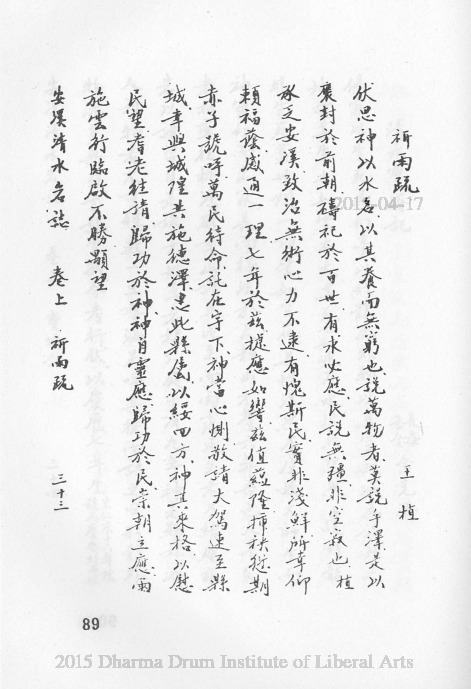 祈雨疏
王植
伏思神以水名以其養而無窮也說萬物者莫說乎澤是以
褒封於前朝禱祀於百世有求必應民說無疆非空寂也植
承乏安溪致治無術心力不逮有愧斯民實非淺鮮所幸仰
賴福蔭感通一理七年於茲捷應如響茲值蘊隆插秧愆期
赤子號呼萬民待命託在宇下神當心惻敬請大駕速至縣
城幸與城隍共施德澤惠此縣屬以綏四方神其來格以慰
民望耆老往請歸功於神神自靈應歸功於民崇朝立應雨
施雲行臨啟不勝顒望
安溪清水岩誌 卷上 祈雨疏 三十三
89
2015-04-17
2015 Dharma Drum Institute of Liberal Arts